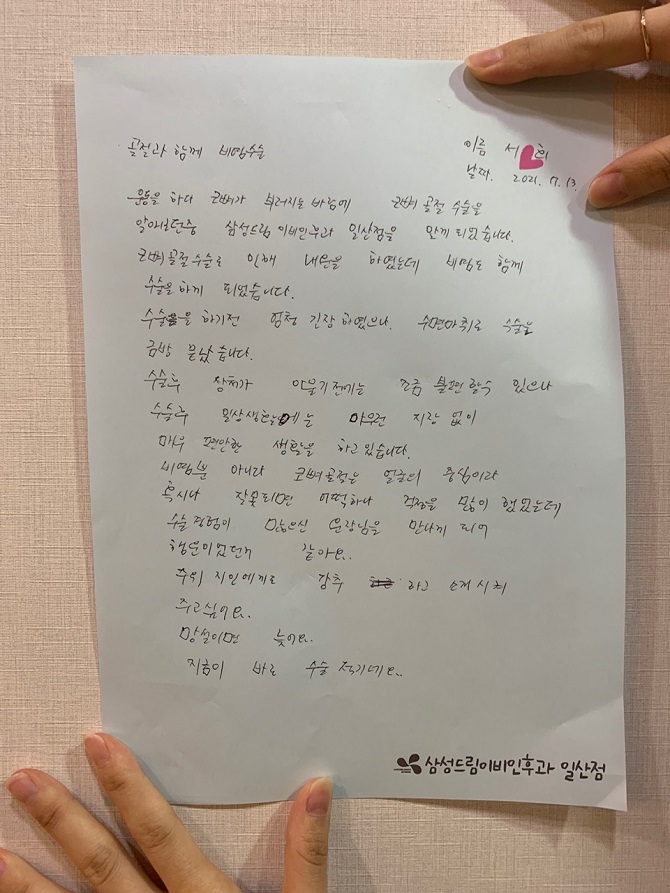 골절과 함께 비염수술
이름 서 희
날짜. 2021. 7. 13.
운동을 하다 코뼈가 부러지는 바람에 코뼈 골절 수술을
알아보던중 삼성드림 이비인후과 일산점을 만나게 되었습니다.
코뼈골절수술로 인해 내원을 하였는데 비염도 함께
수술을 하게 되었습니다.
수술을 하기전 엄청 긴장 하였으나. 수면마취로 수술을
금방 끝났습니다.
수술후 상처가 아물기 전까지는 조금 불편 할수 있으나
수술후 일상생활에는 아무런 지장 없이
매우 편안한 생활을 하고있습니다.
비염뿐 아니라 코뼈골절은 얼굴의 중심이라
혹시나 잘못되면 어떡하나 걱정을 많이 했었는데
수술 경험이 많으신 원장님을 만나게 되어
행운이었던거 같아요..
주위 지인에게도 강추 라고 소개시켜
주고싶어요.
망설이면 늦어요.
지금이 바로 수술 적기네요..
삼성드림이비인후과 일산점